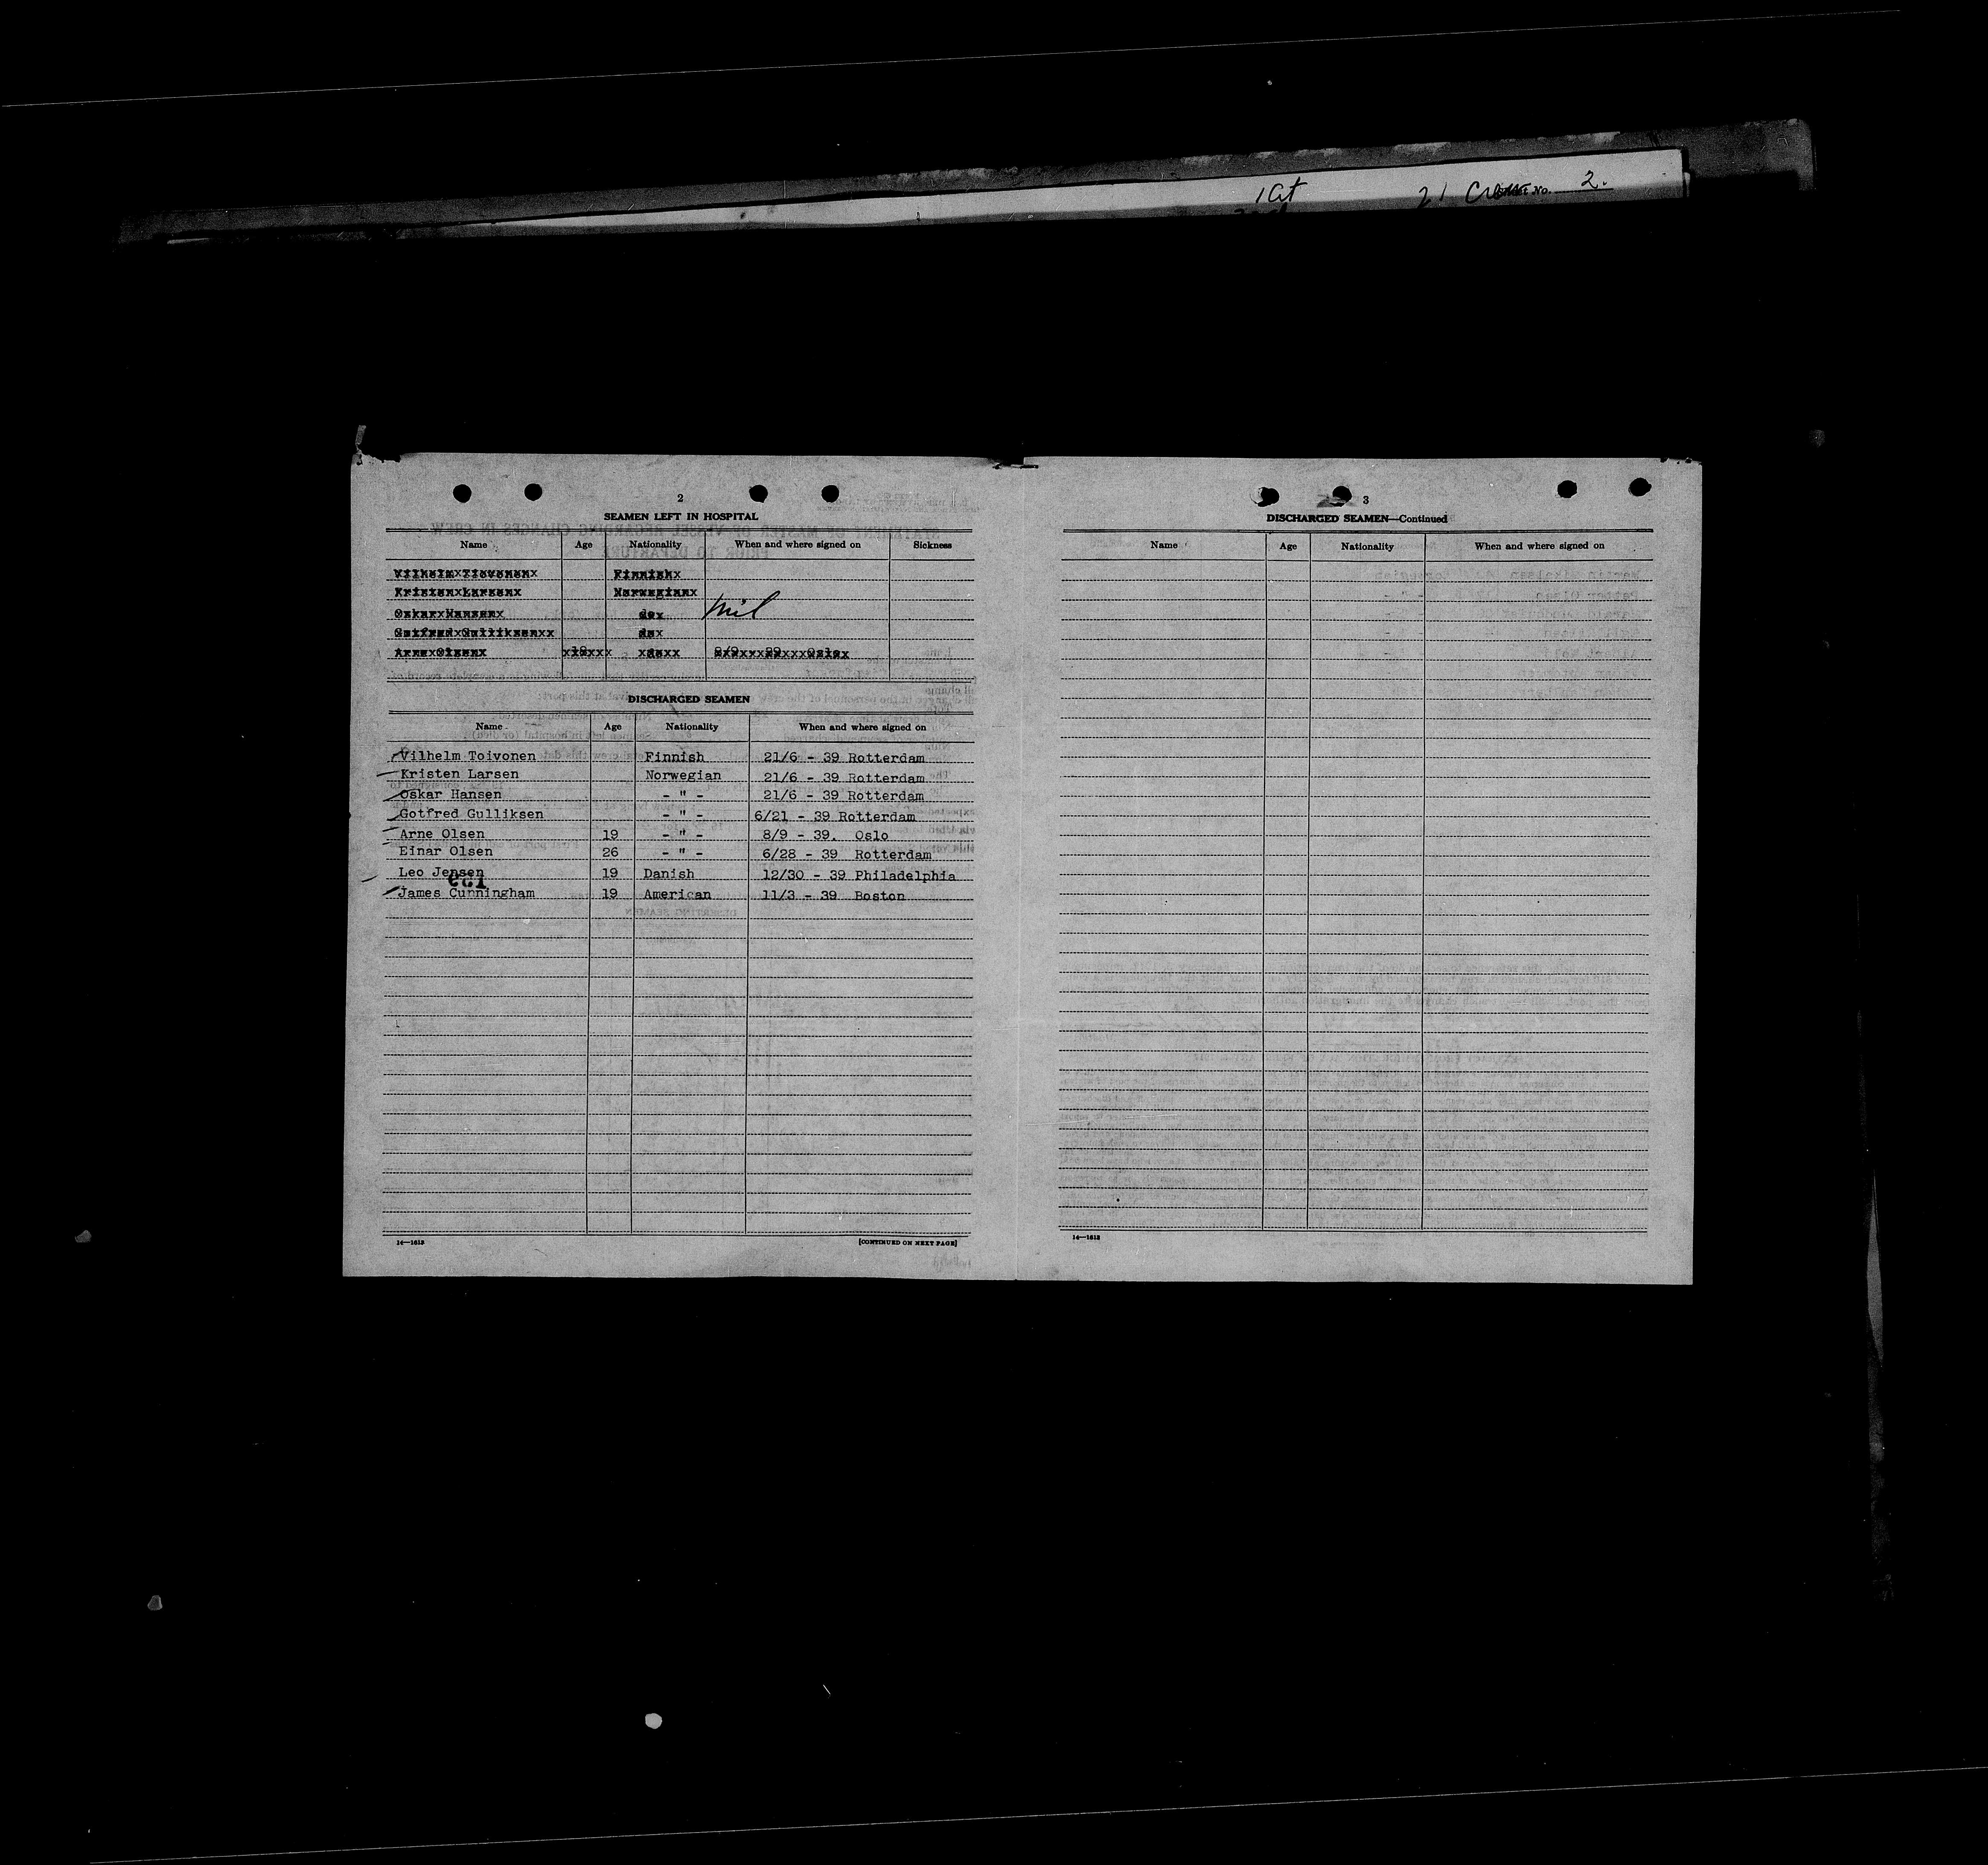 1 at 21 Crew Sheet No. 2.
2
SEAMEN LEFT IN HOSPITAL
Name Age Nationality When and where signed on Sickness
Vilhelm Tiovonen Finnish
Kristen Larsen Norwegian
Oskar Hansen do Nil
Gotfred Gulliksen do
Arne Olsen 19 do 8/9 39 Oslo
DISCHARGED SEAMEN
Name Age Nationality When and where signed on
Vilhelm Toivonen Finnish 21/6 - 39 Rotterdam
Kristen Larsen Norwegian 21/6 - 39 Rotterdam
Oskar Hansen - " - 21/6 - 39 Rotterdam
Gotfred Gulliksen - " - 6/21 - 39 Rotterdam
Arne Olsen 19 - " - 8/9 - 39. Oslo
Einar Olsen 26 - " - 6/28 - 39 Rotterdam
Leo Jensen 19 Danish 12/30 - 39 Philadelphia
James Cunningham 19 American 11/3 - 39 Boston
14—1613 [CONTINUED ON NEXT PAGE]
3
DISCHARGED SEAMEN—Continued
Name Age Nationality When and where signed on
14—1613